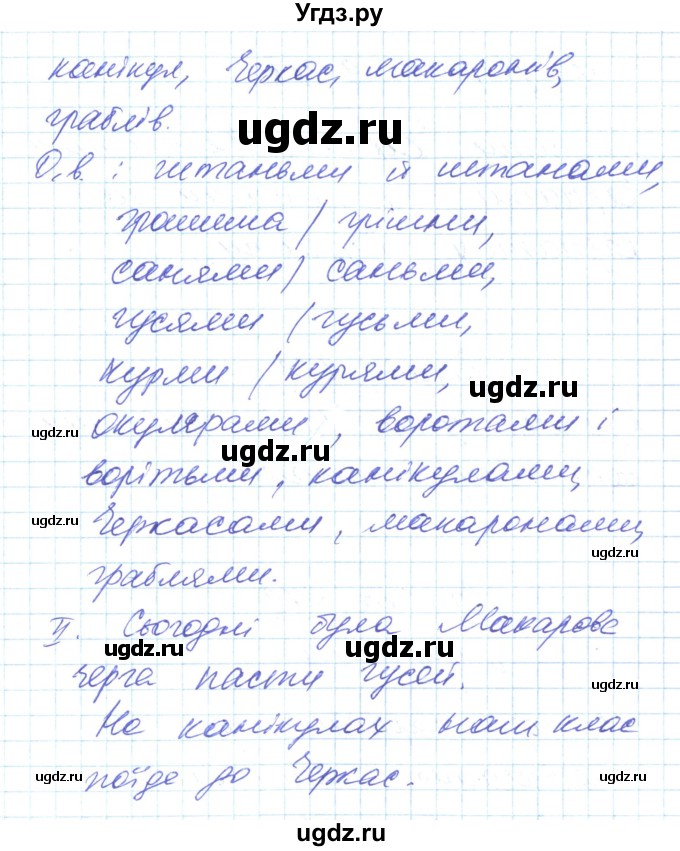 Угдз.ру
канікул, Черкас, макаронів,
граблів.
ugdz.ru
О.в.: штаньми й штанами,
грошима / грішми,
ugdz.ru
санями / саньми,
гусями / гусьми,
курми / курями,
ugdz.ru
окулярами, воротами і
ugdz.ru
ugdz.ru
ворітьми, канікулами,
Черкасами, макаронами,
ugdz.ru
ugdz.ru
граблями.
ugdz.ru
ІІ. Сьогодні була Макарова
ugdz.ru
ugdz.ru
черга пасти гусей.
ugdz.ru
На канікулах наш клас
поїде до Черкас.
ugdz.ru
ugdz.ru
ugdz.ru
ugdz.ru